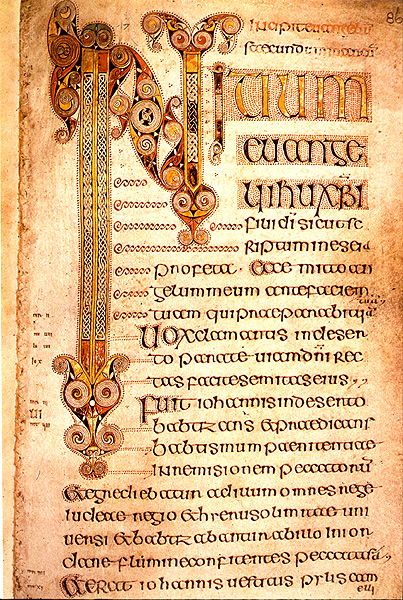 86
INITIUM
euange
lii ihu xpi
filii di sicut sc
riptum in eseia
profeta ecce mitto an
gelum meum ante faciem
tuam qui praeparabit uiā
tuā
uox clamantis in deser
to parate uiam dn̄i rec
tas facite semitas eius
fuit iohannis in deserto
babtizans et praedicans
babtismum paenitentiae
in remisionem peccatorū
et egrediebatur ad illum omnes
iudeae regio et hierusolimitae uni
uersi et babtizabantur ab illo in ior
dane flumine confitentes peccata sua
et erat iohannis uestitus pylis cam
eli